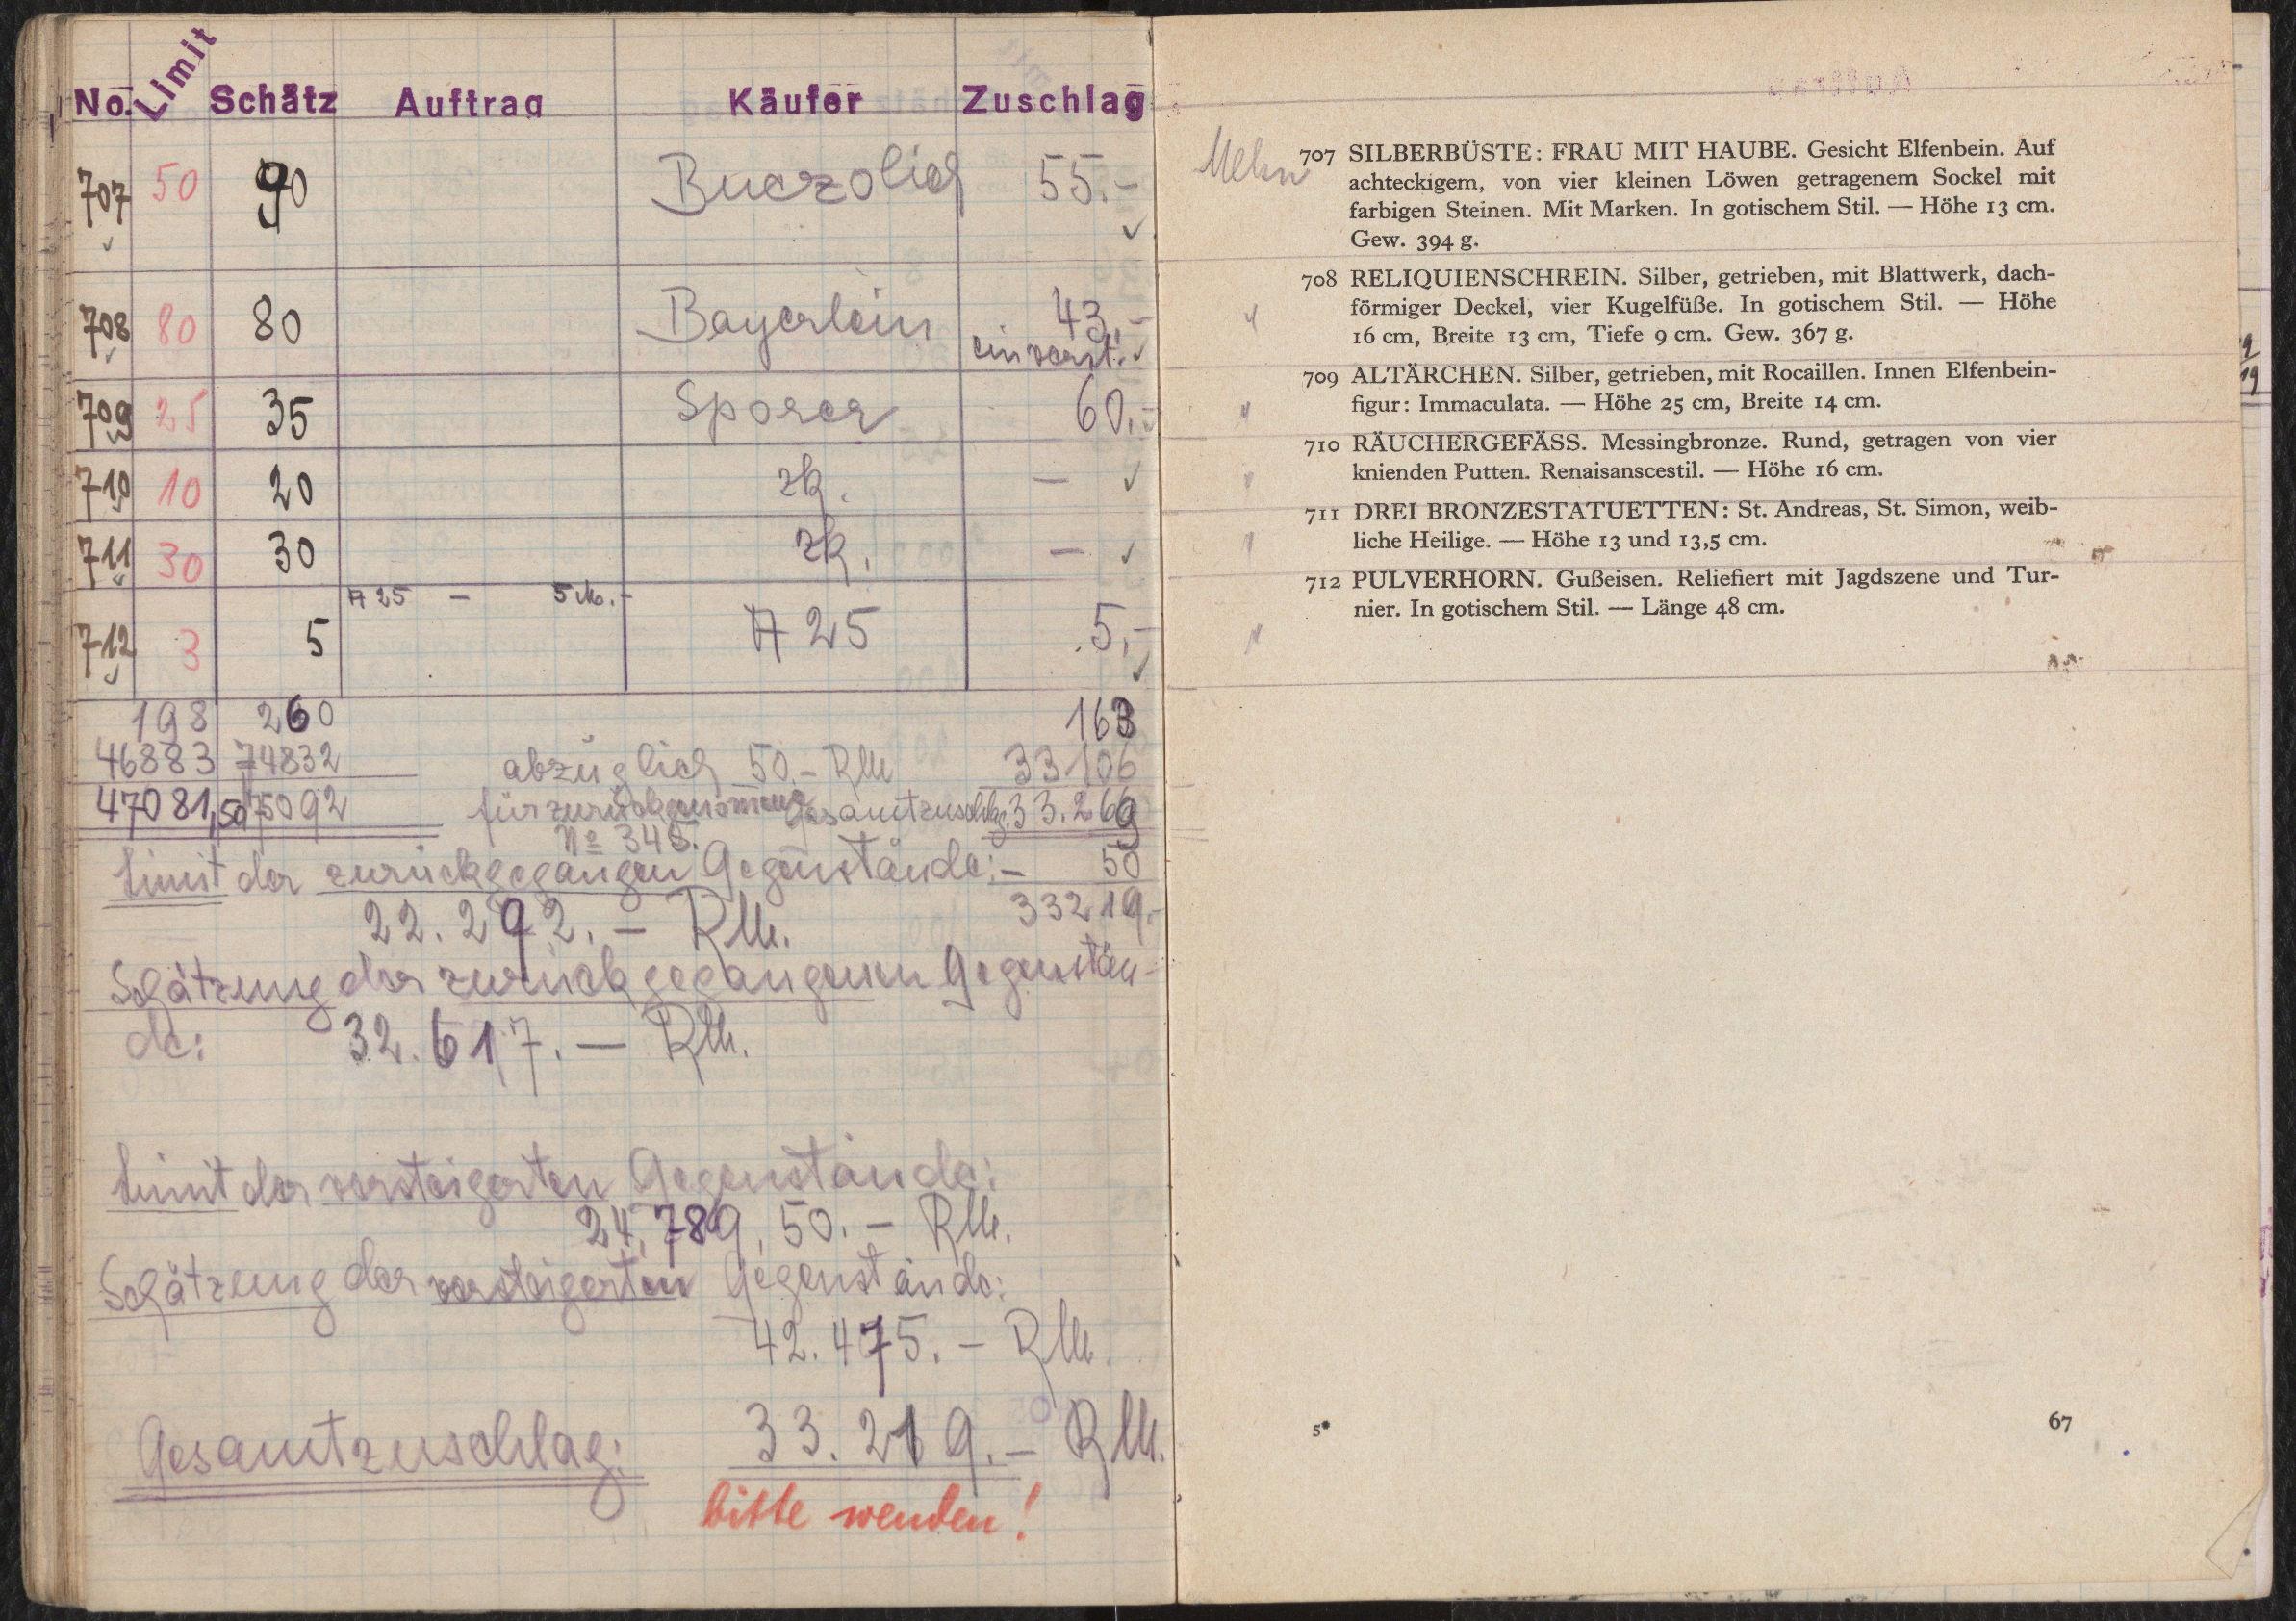 No. Limit Schätz Auftrag Käufer Zuschlag
707 50 90 Buczolich 55.-
708 80 80 Bayerlein 43,-
einverst.
709 25 35 Sporer 60,-
710 10 20 zk. —
711 30 30 zk. —
A 25 — 5 M.-
712 3 5 A 25 5,-
198 260 163
46883 74832 abzüglich 50.- RM 33106
47081,50 75092 für zurückgenommene Gesamtzuschlag: 33.269
No 345.
Limit der zurückgegangen Gegenstände: - 50
22.292.- RM. 33219.-
Schätzung der zurückgegangenen Gegenstän-
de: 32.617.— RM.
Limit der versteigerten Gegenstände:
24,789,50.- RM.
Schätzung der versteigerten Gegenstände:
42.475.- RM
Gesamtzuschlag: 33.219.- RM.
bitte wenden!
707 SILBERBÜSTE: FRAU MIT HAUBE. Gesicht Elfenbein. Auf
achteckigem, von vier kleinen Löwen getragenem Sockel mit
farbigen Steinen. Mit Marken. In gotischem Stil. — Höhe 13 cm.
Gew. 394 g.
708 RELIQUIENSCHREIN. Silber, getrieben, mit Blattwerk, dach-
förmiger Deckel, vier Kugelfüße. In gotischem Stil. — Höhe
16 cm, Breite 13 cm, Tiefe 9 cm. Gew. 367 g.
709 ALTÄRCHEN. Silber, getrieben, mit Rocaillen. Innen Elfenbein-
figur: Immaculata. — Höhe 25 cm, Breite 14 cm.
710 RÄUCHERGEFÄSS. Messingbronze. Rund, getragen von vier
knienden Putten. Renaisanscestil. — Höhe 16 cm.
711 DREI BRONZESTATUETTEN: St. Andreas, St. Simon, weib-
liche Heilige. — Höhe 13 und 13,5 cm.
712 PULVERHORN. Gußeisen. Reliefiert mit Jagdszene und Tur-
nier. In gotischem Stil. — Länge 48 cm.
5* 67